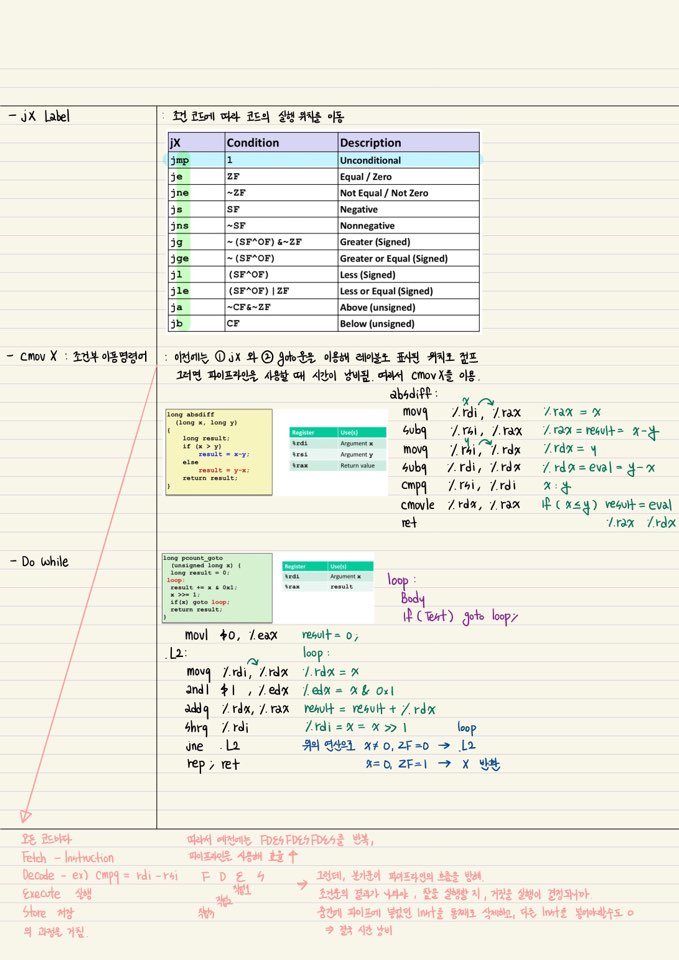 - jX Label
: 조건 코드에 따라 코드의 실행 위치를 이동
jX Condition Description
jmp 1 Unconditional
je ZF Equal / Zero
jne ~ZF Not Equal / Not Zero
js SF Negative
jns ~SF Nonnegative
jg ~(SF^OF)&~ZF Greater (Signed)
jge ~(SF^OF) Greater or Equal (Signed)
jl (SF^OF) Less (Signed)
jle (SF^OF)|ZF Less or Equal (Signed)
ja ~CF&~ZF Above (unsigned)
jb CF Below (unsigned)
- cmov X : 조건부 이동명령어
: 이전에는 ① jX 와 ② goto문을 이용해 레이블로 표시된 위치로 점프
그러면 파이프라인을 사용할 때 시간이 낭비됨. 따라서 cmovX를 이용.
long absdiff
(long x, long y)
{
long result;
if (x > y)
result = x-y;
else
result = y-x;
return result;
}
Register Use(s)
%rdi Argument x
%rsi Argument y
%rax Return value
absdiff:
x
movq %rdi, %rax %rax = x
subq %rsi, %rax %rax = result = x-y
y
movq %rsi, %rdx %rdx = y
subq %rdi, %rdx %rdx = eval = y-x
cmpq %rsi, %rdi x : y
cmovle %rdx, %rax if (x≤y) result = eval
ret %rax %rdx
- Do while
long pcount_goto
(unsigned long x) {
long result = 0;
loop:
result += x & 0x1;
x >>= 1;
if(x) goto loop;
return result;
}
Register Use(s)
%rdi Argument x
%rax result
loop :
Body
if (Test) goto loop;
movl $0, %eax result = 0;
.L2: loop:
movq %rdi, %rdx %rdx = x
andl $1 , %edx %edx = x & 0x1
addq %rdx, %rax result = result + %rdx
shrq %rdi %rdi = x = x >> 1 loop
jne .L2 위의 연산으로 x≠0, ZF=0 → .L2
rep; ret x=0, ZF=1 → X 반환
모든 코드마다
Fetch - Instruction
Decode - ex) cmpq = rdi - rsi
Execute 실행
Store 저장
의 과정을 거침.
따라서 예전에는 FDESFDESFDES를 반복,
파이프라인을 사용해 효율 ↑
F D E S
작업1
작업2
작업3
→ 그런데, 분기문이 파이프라인의 흐름을 방해.
조건문의 결과가 나와야, 참을 실행할 지, 거짓을 실행이 결정되니까.
중간에 파이프에 넣었던 inst를 통째로 삭제하고, 다른 inst를 넣어야할수도 o
⇒ 결국 시간 낭비